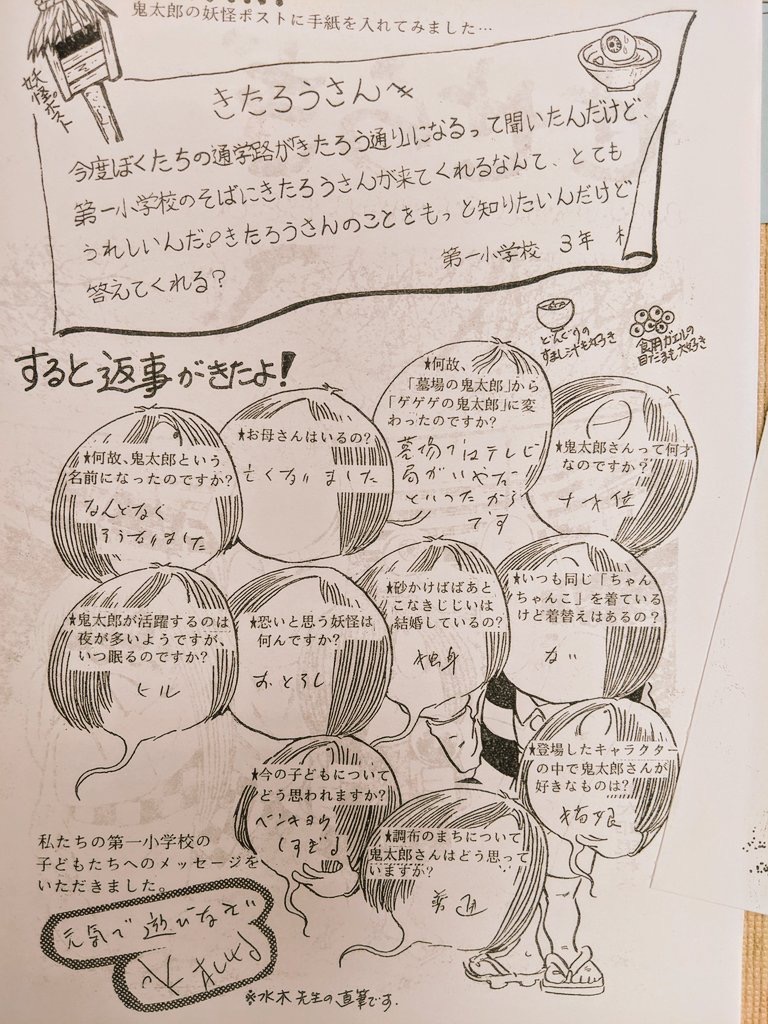 鬼太郎の妖怪ポストに手紙を入れてみました…
妖怪ポスト
きたろうさんへ
今度ぼくたちの通学路が「きたろう通り」になるって聞いたんだけど、
第一小学校のそばにきたろうさんが来てくれるなんて、とても
うれしいんだ。きたろうさんのことをもっと知りたいんだけど
答えてくれる?
第一小学校 3年
どんぐりの
すまし汁も好き
食用ガエルの
目だまも大好き
すると返事がきたよ!
★何故、鬼太郎という
名前になったのですか?
なんとなく
そうなりました
★お母さんはいるの?
亡くなりました
★何故、
「墓場の鬼太郎」から
「ゲゲゲの鬼太郎」に変
わったのですか?
墓場ではテレビ
局がいやだ
といったから
です
★鬼太郎さんって何才
なのですか?
十才位
★鬼太郎が活躍するのは
夜が多いようですが、
いつ眠るのですか?
ヒル
★恐いと思う妖怪は
何んですか?
おとろし
★砂かけばばあと
こなきじじいは
結婚しているの?
独身
★いつも同じ「ちゃん
ちゃんこ」を着ている
けど着替えはあるの?
ない
★今の子どもについて
どう思われますか?
ベンキョウ
しすぎる
★調布のまちについて
鬼太郎さんはどう思って
いますか?
普通
★登場したキャラクター
の中で鬼太郎さんが
好きなものは?
猫娘
私たちの第一小学校の
子どもたちへのメッセージを
いただきました。
元気で遊びなさい
水木しげる
※水木先生の直筆です。